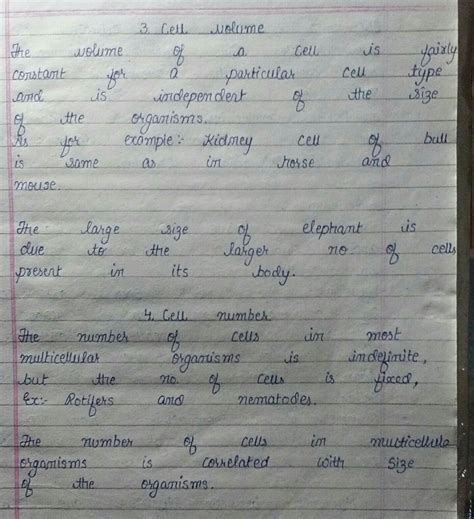 3. Cell volume
The volume of a cell is fairly
constant for a particular cell type
and is independent of the size
of the organisms.
As for example:- Kidney cell of bull
is same as in horse and
mouse.
The large size of elephant is
due to the larger no. of cells
present in its body.
4. Cell number
The number of cells in most
multicellular organisms is indefinite,
but the no. of cells is fixed,
Ex:- Rotifers and nematodes.
The number of cells in multicellule
organisms is correlated with size
of the organisms.